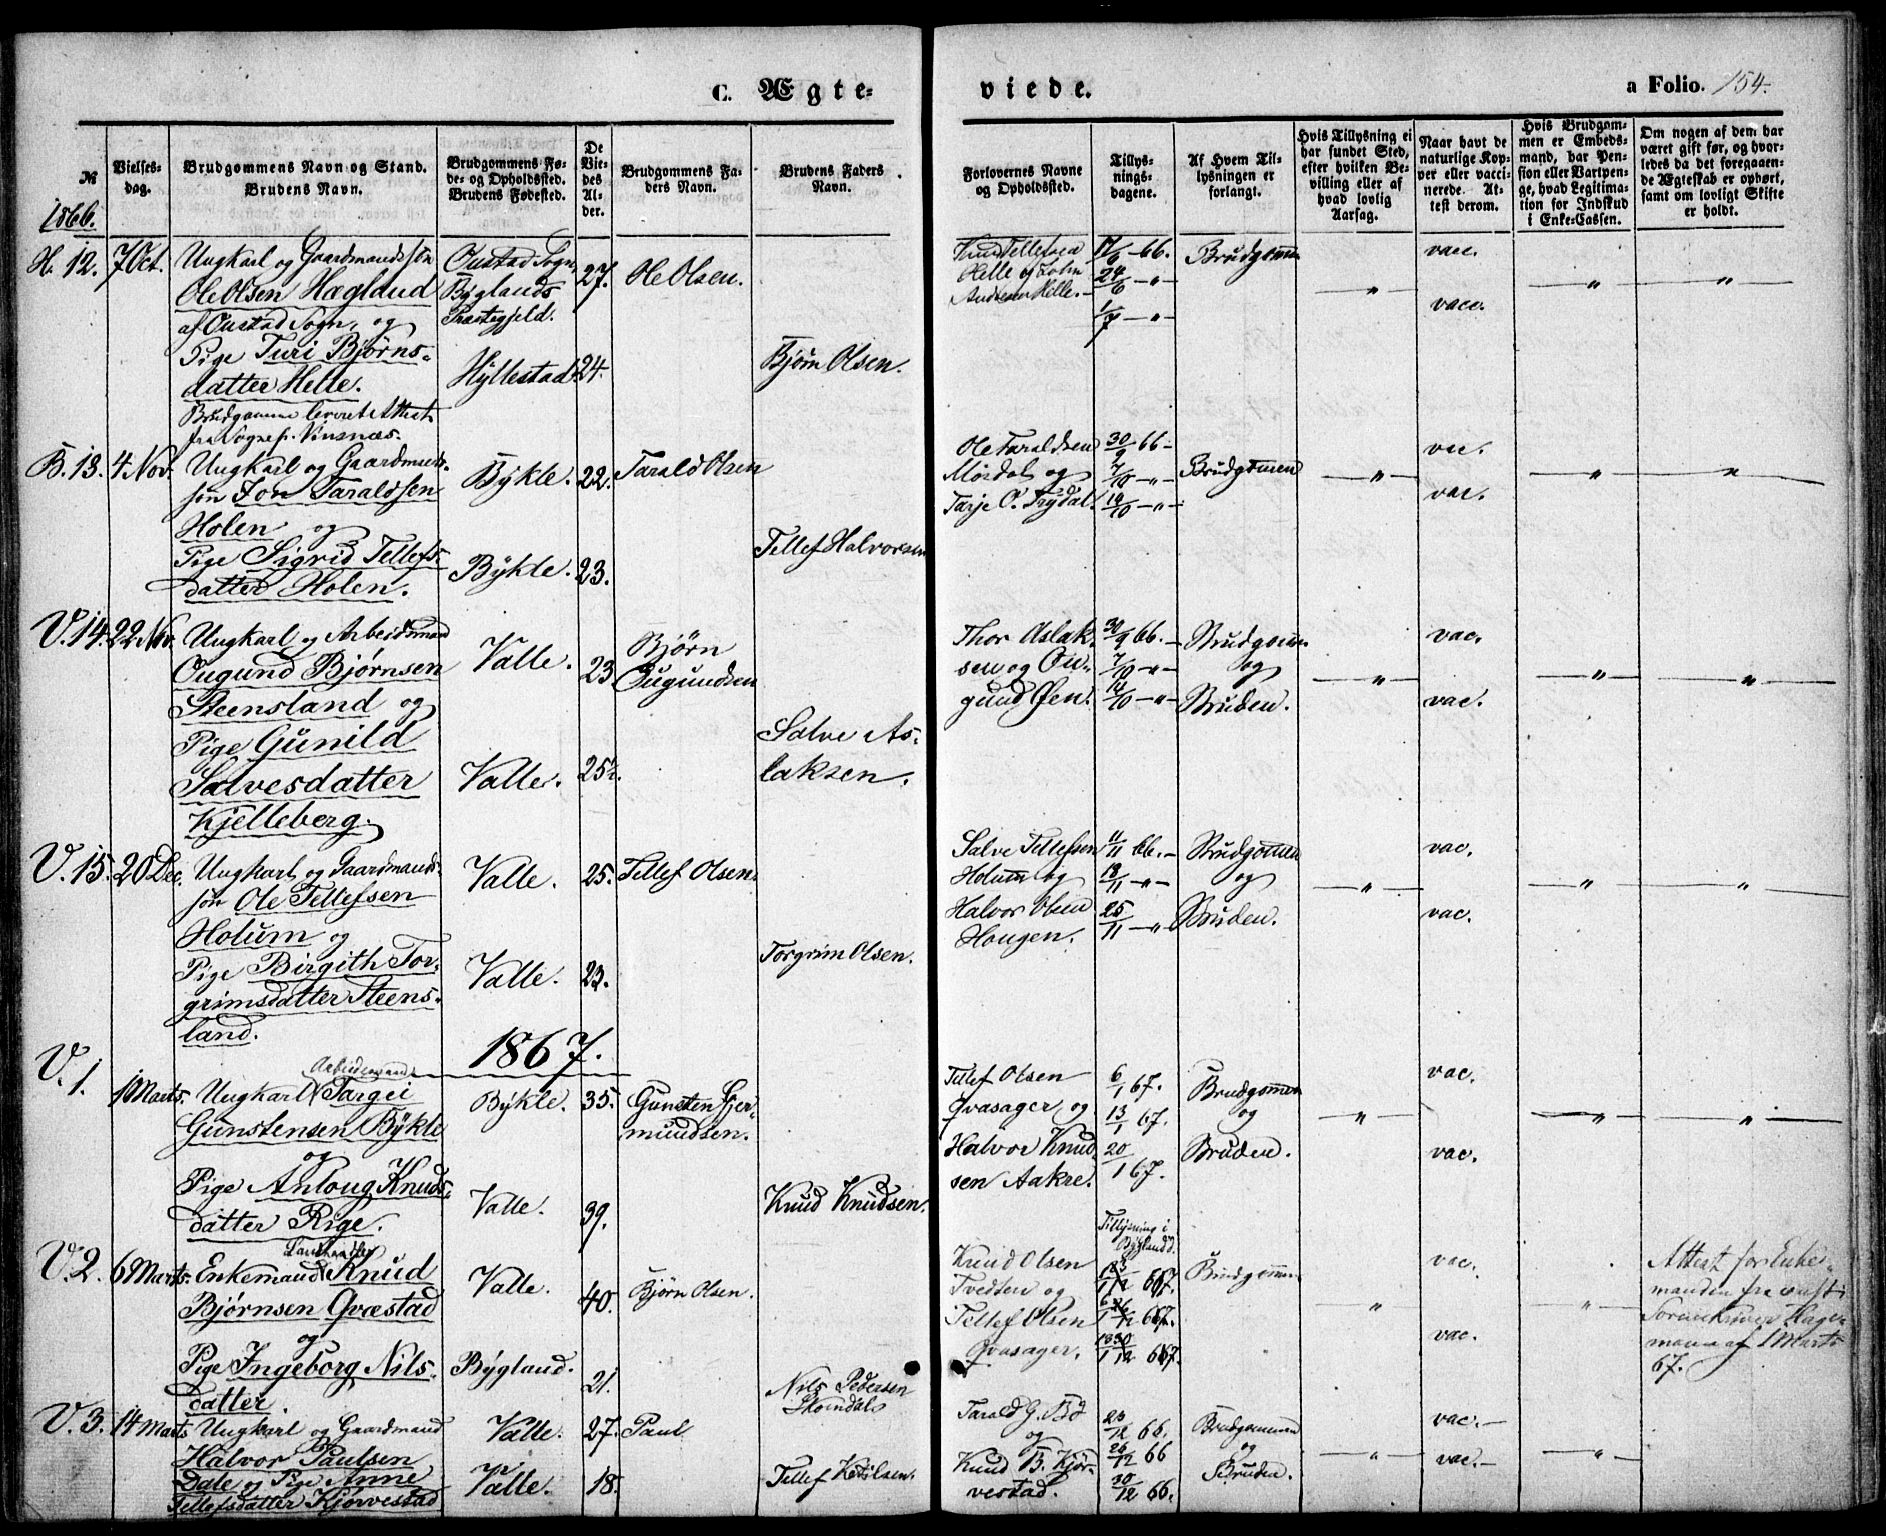 C. Ægte-
viede.
a Folio. 154.
№
Vielses-
dag.
Brudgommens Navn og Stand.
Brudens Navn.
Brudgommens Fø-
de- og Opholdsted.
Brudens Fødested.
De
Vie-
des
Al-
der.
Brudgommens Fa-
ders Navn.
Brudens Faders
Navn.
Forlovernes Navne
og Opholdsted.
Tillys-
nings-
dagene.
Af Hvem Til-
lysningen er
forlangt.
Hvis Tillysning ei
har fundet Sted,
efter hvilken Be-
villing eller af
hvad lovlig
Aarsag.
Naar havt de
naturlige Kop-
per eller vacci-
nerede. At-
test derom.
Hvis Brudgom-
men er Embeds-
mand, har Pen-
sion eller Vartpen-
ge, hvad Legitima-
tion for Indskud
i Enke-Cassen.
Om nogen af dem har
været gift før, og hvor-
ledes da det foregaaen-
de Ægteskab er ophørt,
samt om lovligt Skifte
er holdt.
1866.
H. 12. 7 Oct.
Ungkarl og Gaardmandssøn
Ole Olsen Hægland
af Oustad Sogn, og
Pige Turi Bjørns-
datter Helle.
Brudgommen leveret Attest
fra Sognepr. Vinsnæs.
Oustad Sogn,
Byglands
Præstegjeld.
Hyllestad
27.
24.
Ole Olsen.
Bjørn Olsen.
Knud Tellefsen
Helle og
Andersen Helle.
17/6 66.
24/6 — " —
1/7 — " —
Brudgommen
— " —
vacc.
vacc.
— " —
— " —
B. 13. 4 Nov.
Ungkarl og Gaardmands-
søn Jon Taraldsen
Holen og
Pige Sigrid Tellefs-
datter Holen.
Bykle.
Bykle.
22.
23.
Tarald Olsen
Tellef Halvorsen
Ole Taraldsen
Mosdøl og
Tarje O. Trydal.
30/9 66 —
7/10 — " —
14/10 — " —
Brudgommen
— " —
vac.
vac.
— " —
— " —
V. 14. 22 Nov.
Ungkarl og Arbeidsmand
Ougund Bjørnsen
Steensland og
Pige Gunild
Salvesdatter
Kjelleberg.
Valle.
Valle.
23
25½.
Bjørn
Ougundsen
Salve As-
laksen.
Thor Aslak-
sen og Ou-
gund Øen.
30/9 66. —
7/10 — " —
14/10 — " —
Brudgommen
og
Bruden.
— " —
vac.
vac.
— " —
— " —
V. 15. 20 Dec.
Ungkarl og Gaardmands-
søn Ole Tellefsen
Holum og
Pige Birgith Tor-
grimsdatter Steens-
land.
Valle.
Valle.
25.
23.
Tellef Olsen.
Torgrim Olsen.
Salve Tellefsen
Holum og
Halvor Olsen
Hougen.
11/11 66. —
18/11 — " —
25/11 — " —
Brudgommen
og
Bruden.
— " —
vac.
vac.
— " —
— " —
1867.
V. 1. 1 Marts.
Arbeidsmand
Ungkarl Targei
Gunstensen Bykle
og
Pige Anlaug Knuds-
datter Rige.
Bykle.
Valle.
35.
39.
Gunsten Gjer-
mundsen.
Knud Knudsen.
Tellef Olsen
Qvasager, og
Halvor Knud-
sen Aakre.
6/1 67.
13/1 67.
20/1 67.
Brudgommen
og
Bruden.
— " —
vac.
vac.
— " —
— " —
V. 2. 6 Marts.
Landhandler
Enkemand Knud
Bjørnsen Qvæstad
og
Pige Ingeborg Nils-
datter.
Valle.
Bygland.
40.
21.
Bjørn Olsen.
Nils Pedersen
Knud Olsen
Tvedten og
Tellef Olsen
Qvasager.
Tillysning i
Bygland
Brudgommen
— " —
vac.
vac.
— " —
Attest for Enke-
manden fra
Sorenskriver Hage-
mann af 1 Marts
67.
V. 3. 14 Marts
Ungkarl og Gaardmand
Halvor Paulsen
Dale og Pige Anne
Tellefsdatter Kjørvestad
Valle.
Valle.
27.
18.
Paul
Tellef Ketilsen.
Tarald G. Bø
og
Knud B. Kjør-
vestad.
23/12 66.
26/12 66
30/12 66.
Brudgommen
og
Bruden.
— " —
vac. —
vac. —
— " —